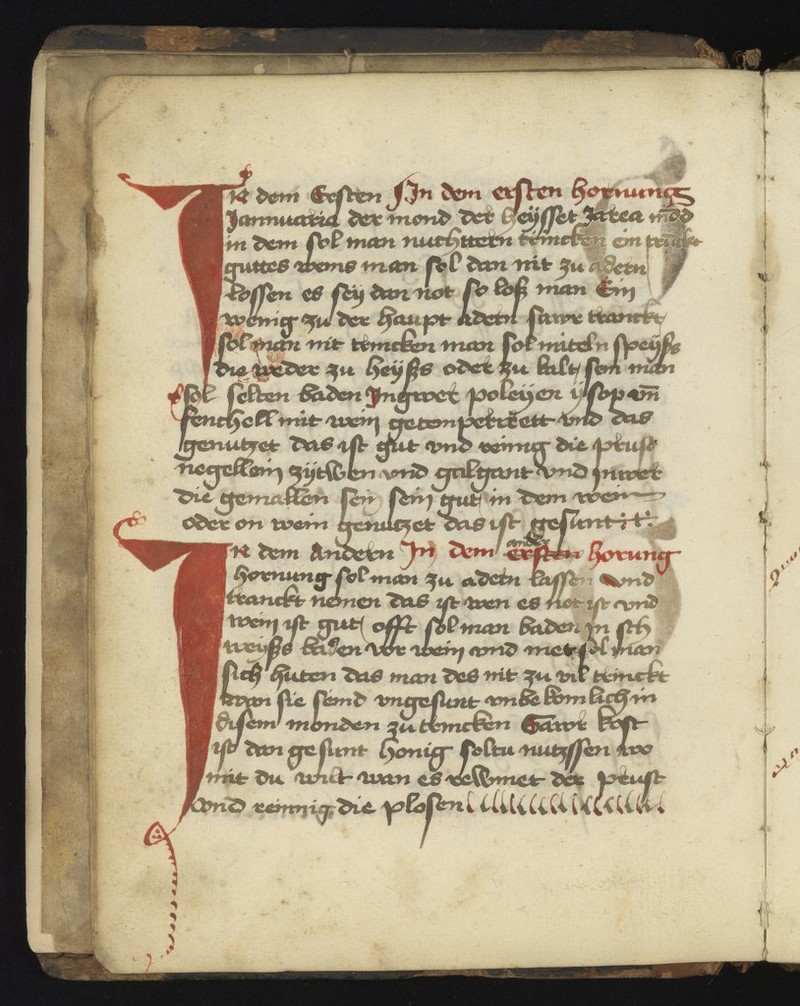 In dem Ersten In dem ersten hornung
Jannuaria der mond der heysset Jarea mod
in dem sol man nuchttern trincken ein trunck
guttes weins man sol dan nit zu adern
lossen es sey dan not so loß man Ein
wenig zu der haupt adern sawr tranckt
sol man nit trincken man sol miteln speyß
die weder zu heyß oder zu kalt sen man
sol selten baden Ingwer poleyen ysop vn̄
fenchell mit wein getemperrett vnd das
genutzet das ist gut vnd reinig die prust
negellein zytwen vnd galgant vnd Inwer
die gemallen sein sein gut in dem wein
oder on wein genutzet das ist gesunt
In dem Andern In dem ander ersten horung
hornung sol man zu adern lassen vnd
tranckt nemen das ist wen es not ist vnd
wein ist gut offt sol man baden In sch
weyß baden vor wein vnd met sol man
sich huten das man des nit zu vil trinckt
wan sie seind vngesunt vnbekomlich in
disem monden zu trincken Sawr kost
ist dan gesunt honig soltu nutzssen wo
mit du wilt wan es rewmet der prust
vnd reinnig die plosen